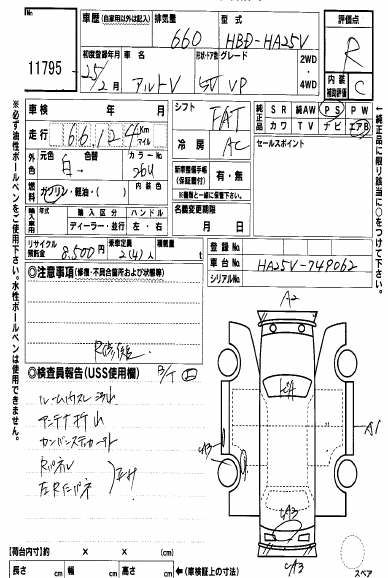 No.
11795
車歴 (自家用以外は記入)
排気量
型式
660
HBD-HA25V
評価点
R
内装
補助評価
C
初度登録年月
車名
形状・ドア数
グレード
25/2月
アルトV
5V
VP
2WD
4WD
車検 年 月
走行
66,124
Km
マイル
シフト
FAT
純正品
SR 純AW PS PW
カワ TV ナビ エアB
外色
元色
色替
カラーNo
白→
26U
冷房
AC
セールスポイント
燃料
ガソリン・軽油・( )
内装色
新車整備手帳
(保証書付)
有・無
※書類と一緒に保管して下さい。
輸入車用
年式
輸入区分
ハンドル
ディーラー・並行
左・右
名義変更期限
月 日
リサイクル
預託金
8,500円
乗車定員
2(4)人
積載量
t
登録No
車台No
HA25V-749062
シリアルNo
◎注意事項 (修復・不具合箇所および状態等)
R修復
◎検査員報告(USS使用欄)
ルームハウスレ
アンテナ折れ
Rパネル
A2
A1
A3
A3
スペア
【荷台内寸】約 × × (cm)
長さ cm 幅 cm 高さ cm ←(車検証上の寸法)
※必ず油性ボールペンをご使用下さい。水性ボールペンは使用できません。
←純正品に限り該当に○をつけて下さい。